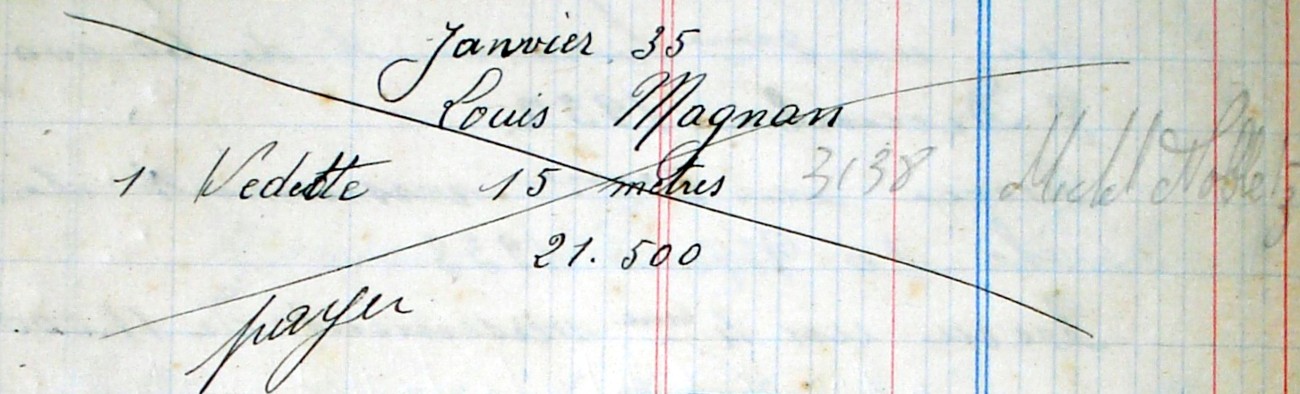 Janvier 35
Louis Magnan
1 Vedette 15 mètres 3138 Michel Nobletz
21.500
payer